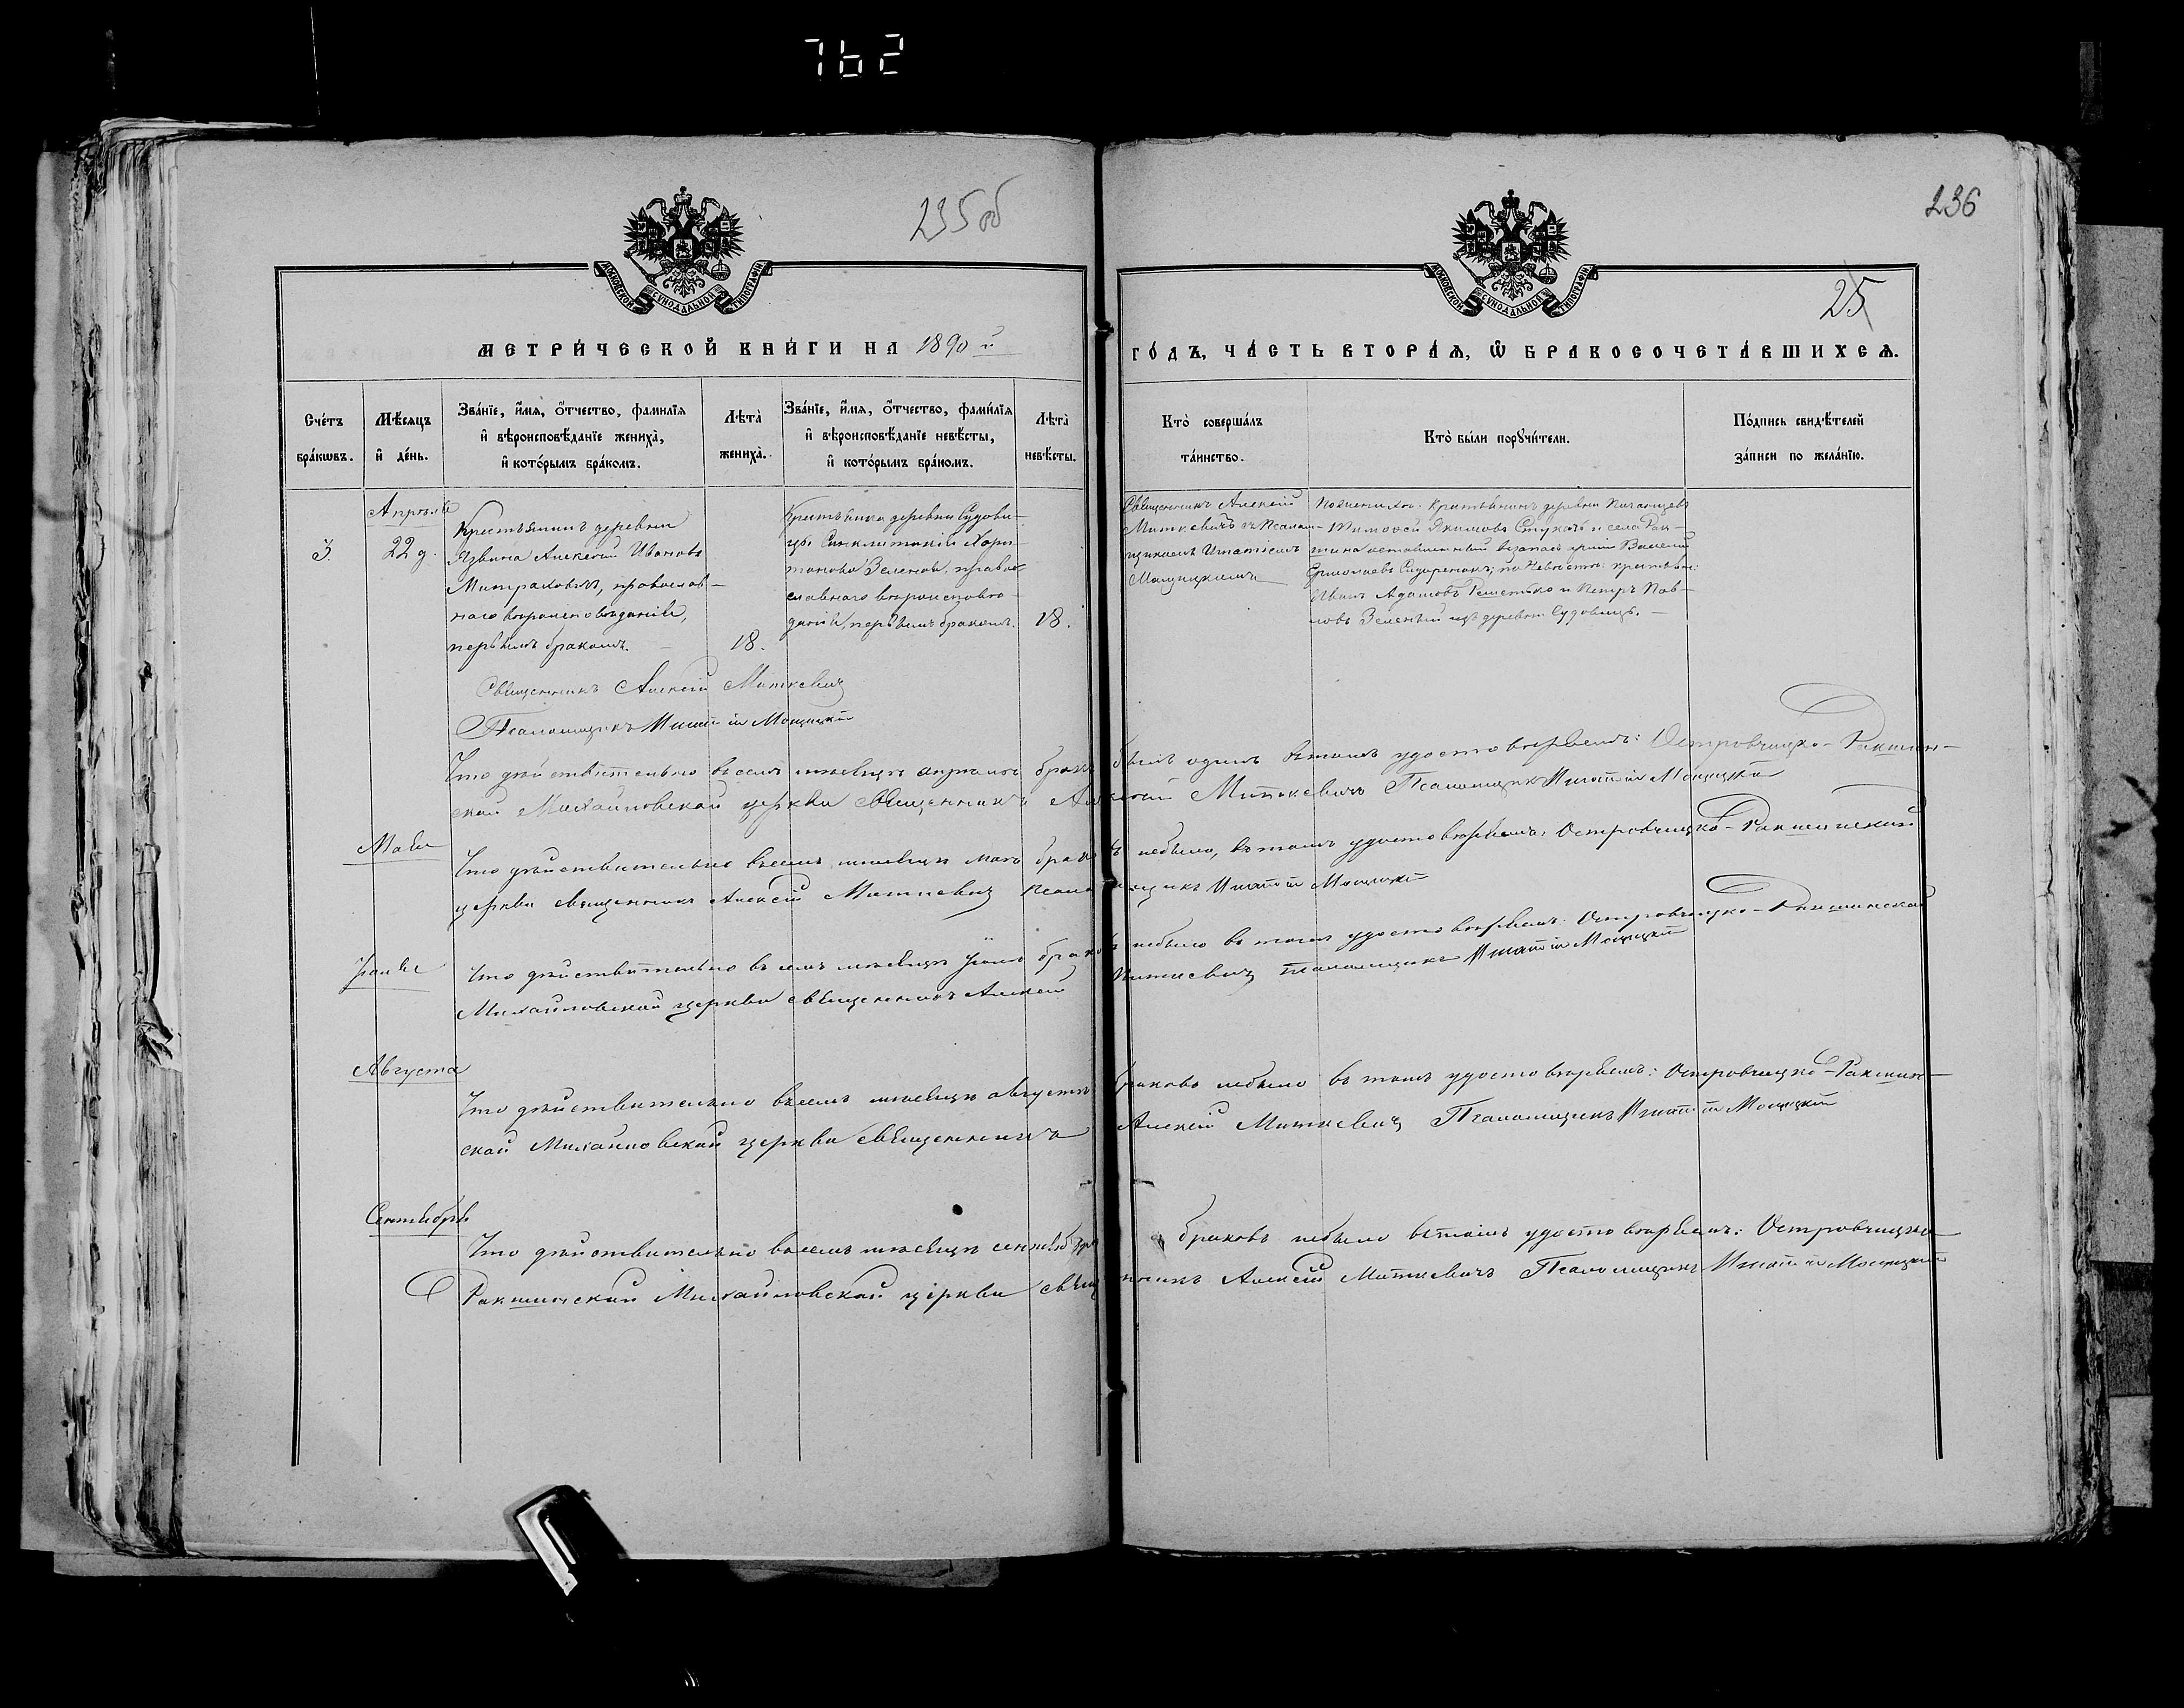 762
235 об
236
25
МОСКОВСКОЙ СѴНОДАЛЬНОЙ ТИПОГРАФІИ
МОСКОВСКОЙ СѴНОДАЛЬНОЙ ТИПОГРАФІИ
МЕТРИ́ЧЕСКОЙ КНИ́ГИ НА 1890 й
ГО́ДЪ, ЧА́СТЬ ВТОРА́Ѧ, Ѽ БРАКОСОЧЕТА́ВШИХСѦ.
Сче́тъ бра́кѡвъ.
Мѣ́сѧцъ и҆ де́нь.
Зва́нїе, и҆́мѧ, ѻ҆́тчество, фами́лїѧ
и҆ вѣроисповѣ́данїе жениха̀,
и҆ кото́рымъ бра́комъ.
Лѣ́та̀ жениха̀.
Зва́нїе, и҆́мѧ, ѻ҆́тчество, фами́лїѧ
и҆ вѣроисповѣ́данїе невѣ́сты,
и҆ кото́рымъ бра́комъ.
Лѣ́та̀ невѣ́сты.
Кто̀ соверша́лъ
та́инство.
Кто̀ бы́ли порꙋчи́тели.
По́дпись свидѣ́телей
за́писи по жела́нїю.
Апрѣля
3.
22 д.
Крестьянинъ деревни
Язвина Алексѣй Ивановъ
Митраковъ, православ-
наго вѣроисповѣданія,
первымъ бракомъ.
18.
Крестьянка деревни Судови-
цы Синклитикія Хари-
тонова Зеленая, право-
славнаго вѣроисповѣ-
данія, первымъ бракомъ.
18.
Священникъ Алексій
Миткевичъ съ Псалом-
щикомъ Игнатіемъ
Мощицкимъ
По женихѣ: крестьянинъ деревни
Тимоѳей Якимовъ и села Рак-
шина въ запасъ арміи Василій
Ермолаевъ Сидоренокъ; по невѣстѣ: крестьяне:
Иванъ Адамовъ и Петръ Пав-
ловъ Зеленый изъ деревни Судовицъ.
Священникъ Алексій Миткевичъ
Псаломщикъ Игнатій Мощицкій
Что дѣйствительно въ семъ мѣсяцѣ апрѣлѣ бракъ былъ одинъ въ томъ удостовѣряемъ: Островчицко-Ракшин-
ской Михайловской церкви священникъ Алексій Миткевичъ Псаломщикъ Игнатій Мощицкій
Мая
Что дѣйствительно въ семъ мѣсяцѣ маѣ браковъ небыло, въ томъ удостовѣряемъ: Островчицко-Ракшинской
церкви священникъ Алексій Миткевичъ Псаломщикъ Игнатій Мощицкій
Іюня
Что дѣйствительно въ семъ мѣсяцѣ Іюнѣ браковъ небыло въ томъ удостовѣряемъ: Островчицко-Ракшинской
Михайловской церкви священникъ Алексій Миткевичъ Псаломщикъ Игнатій Мощицкій
Августа
Что дѣйствительно въ семъ мѣсяцѣ августѣ браковъ небыло въ томъ удостовѣряемъ: Островчицко-Ракшин-
ской Михайловской церкви священникъ Алексій Миткевичъ Псаломщикъ Игнатій Мощицкій
Сентября
Что дѣйствительно въ семъ мѣсяцѣ сентябрѣ браковъ небыло въ томъ удостовѣряемъ: Островчицко
Ракшинской Михайловской церкви священникъ Алексій Миткевичъ Псаломщикъ Игнатій Мощицкій